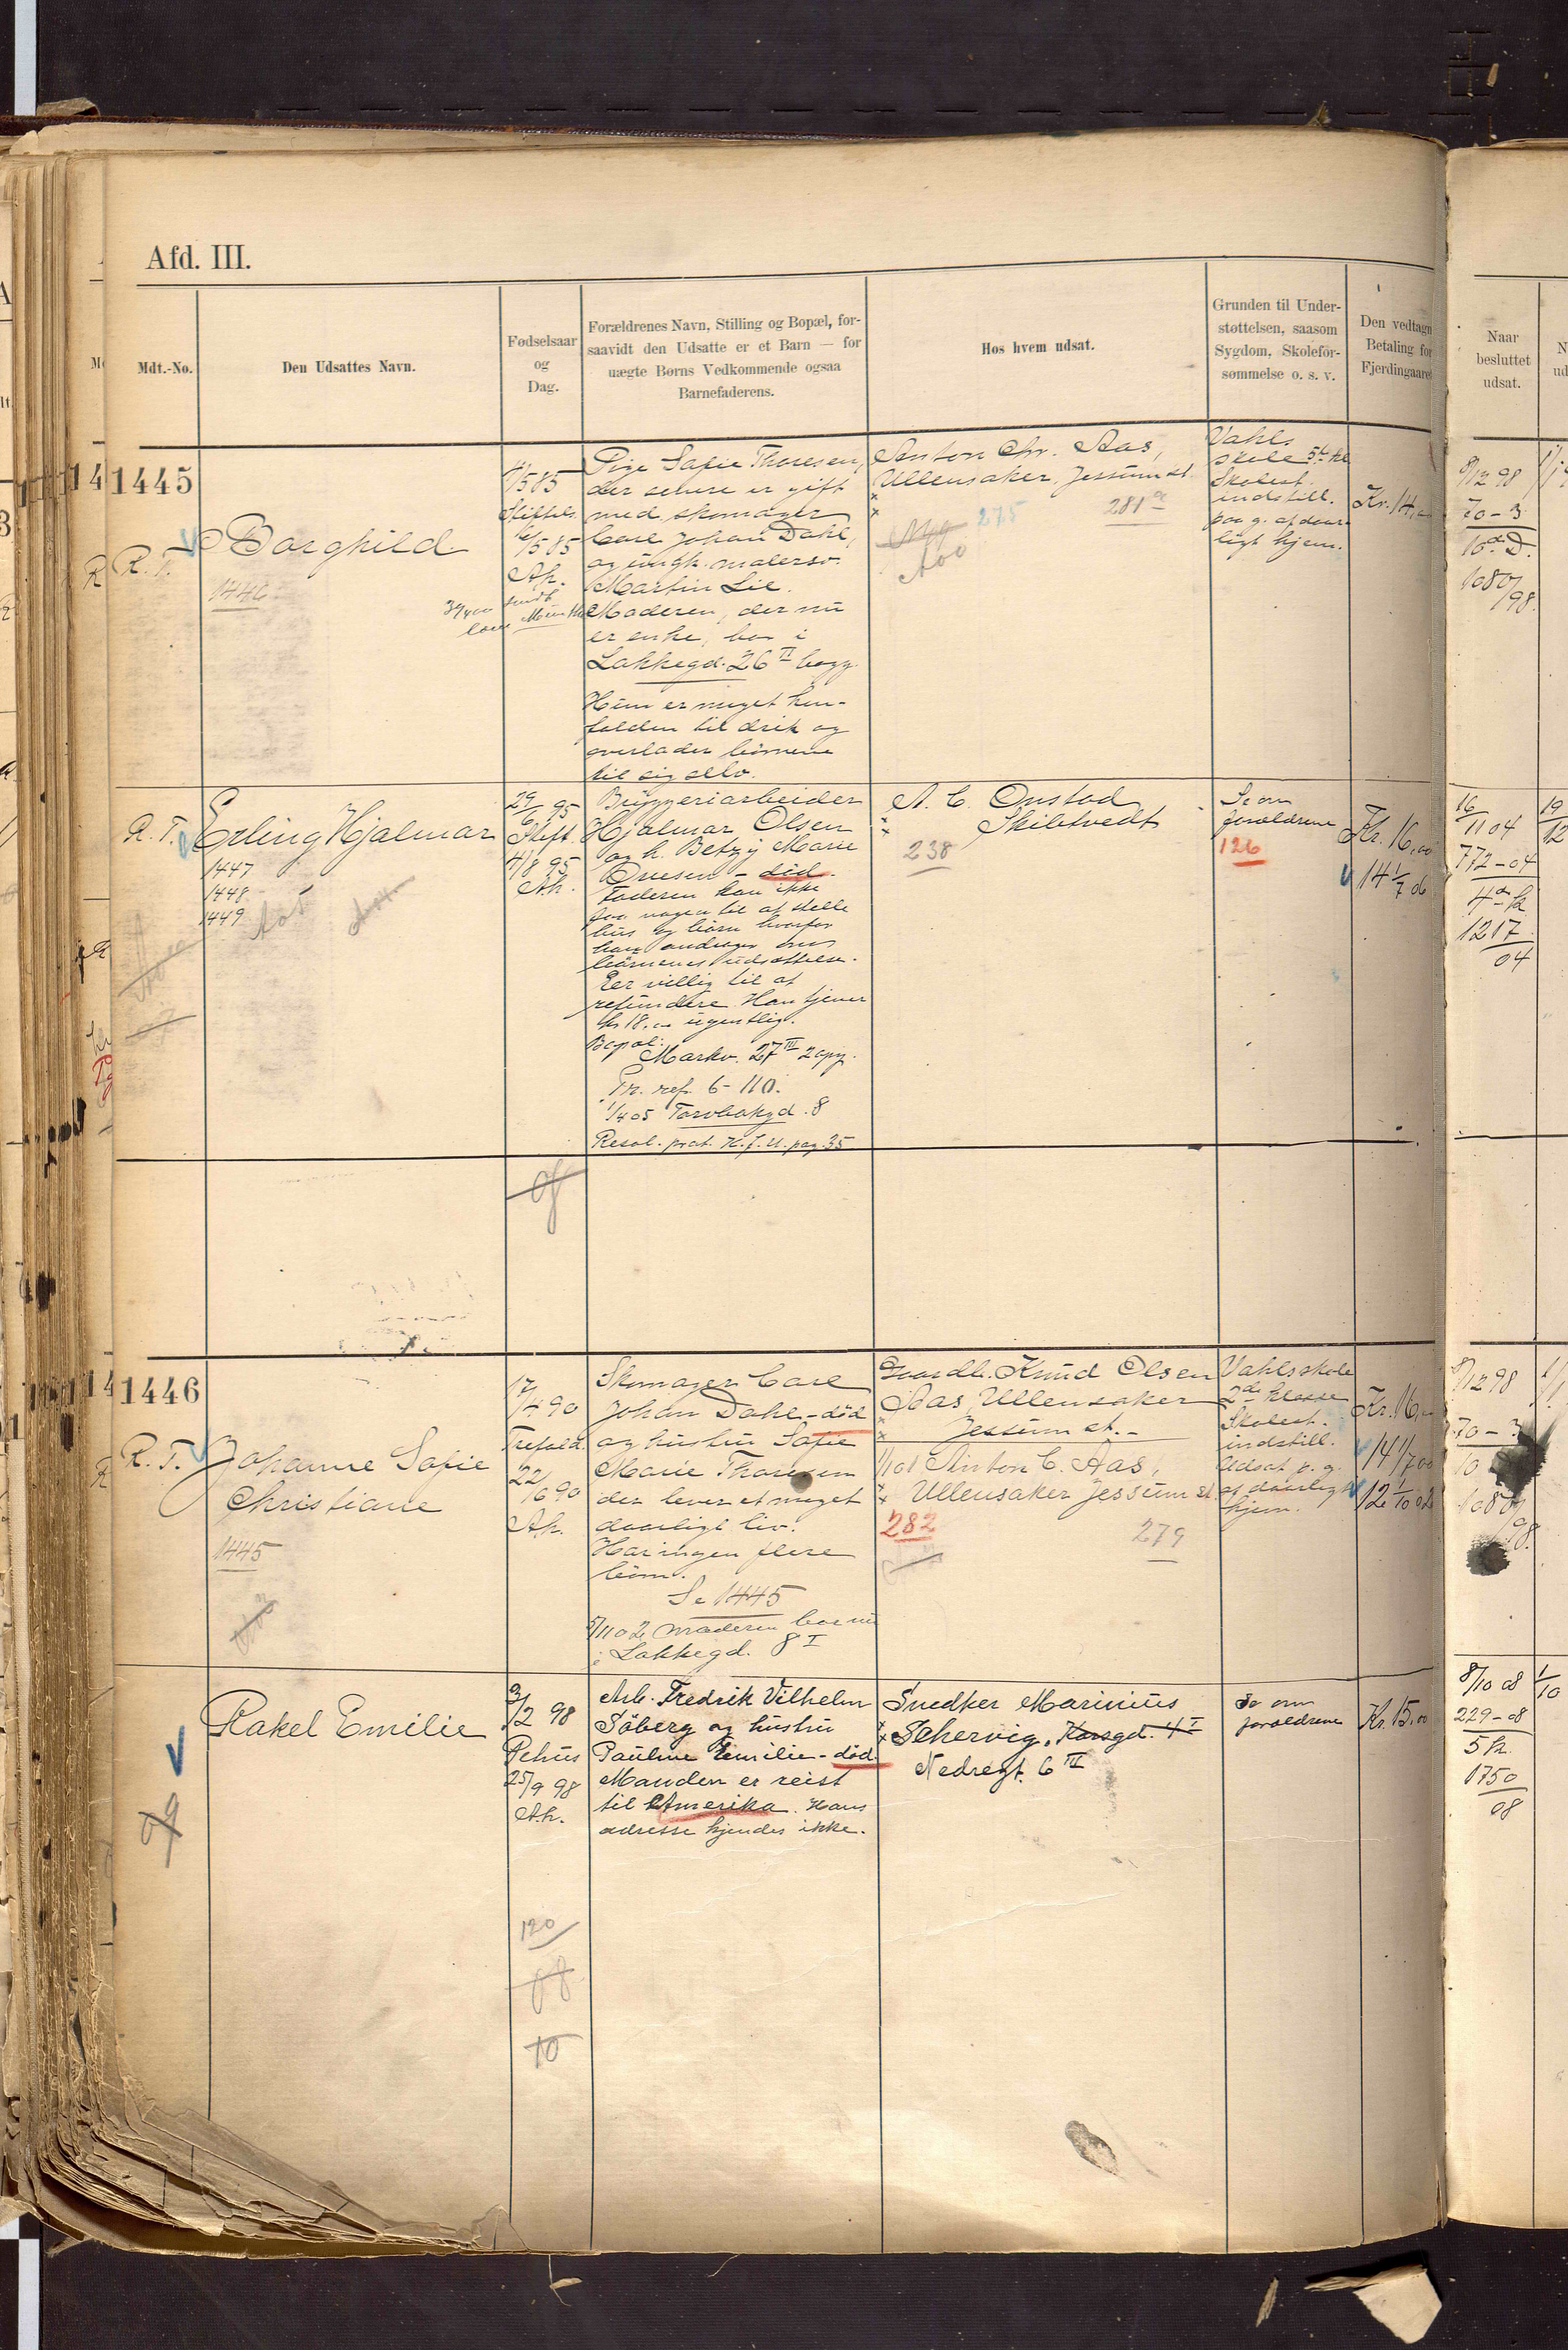 Afd. III.
Mdt.-No.
Den Udsattes Navn.
Fødselsaar
og
Dag.
Forældrenes Navn, Stilling og Bopæl, for-
saavidt den Udsatte er et Barn — for
uægte Børns Vedkommende ogsaa
Barnefaderens.
Hos hvem udsat.
Grunden til Under-
støttelsen, saasom
Sygdom, Skolefor-
sømmelse o. s. v.
Den vedtagn
Betaling for
Fjerdingaaret
Naar
besluttet
udsat.
1445
R. T.
Borghild
1446
4/5 85
Stiftels.
/5 85
Ak.
Pige Sofie Thoresen,
der senere er gift
med skomager
Carl Johan Dahl,
og ungk. malersv.
Martin Lie.
Moderen, der nu
er enke, bor i
Lakkegd. 26 II bagg.
Hun er meget hen-
falden til drik og
overlader børnene
til sig selv.
Anton Chr. Aas,
Ullensaker, Jessum st.
275
281a
Vahls
skole 5te kl
Skolest.
indstill.
paa g. af daar-
ligt hjem.
Kr. 14,
8/12 98
70-3
10 D.
1080/98.
R. T.
Erling Hjalmar
1447
1448
1449
29/6 95
Stift.
4/8 95
Ak.
Bryggeriarbeider
Hjalmar Olsen
og h. Betzy Marie
Ovesen - død.
Faderen kan ikke
faa nogen til at stelle
hus og børn hvorfor
han andrager om
børnenes udsættelse.
Eer villig til at
refundere Han tjener
kr 18.00 ugentlig.
Bopæl:
Markv. 27 III 2 opg.
Pr. ref. 6-110.
1/4 05 Torvbakgd. 8
Resol. prot. H.f.U. pag. 35
A. C. Onstad
Skibtvedt
238
Se om
forældrene
126
Kr. 16,00
14 1/7 06
16/11 04
772-04
4de k
1217/04
1446
R. T.
Johanne Sofie
Christiane
1445
17/4 90
Trefold.
22/6 90
Ak.
Skomager Carl
Johan Dahl - død
og hustru Sofie
Marie Thoresen
der lever et meget
daarligt liv.
Har ingen flere
børn.
Se 1445
5/11 02 moderen bor nu
i Lakkegd. 8 I
Gaardb. Knud Olsen
Aas, Ullensaker
Jessum st. -
1/1 01 Anton C. Aas,
Ullensaker Jessum st.
282
279
Vahls skole
2de klasse
Skolest.
indstill.
Udsat p. g.
af daarligt
hjem.
Kr. 16,
14 1/7 00
12 1/10 02
8/12 98
70-3
10
1080/98.
Rakel Emilie
3/2 98
Pehus
25/9 98
Ak.
Arb. Fredrik Vilhelm
Söberg og hustru
Pauline Emilie - død.
Manden er reist
til Amerika. Hans
adresse kjendes ikke.
Snedker Marinius
Schervig, Korsgd. 4 I
Nedregt. 6 III
Se om
forældrene
Kr. 15,00
8/10 08
229-08
5 k.
1750/08
120
10